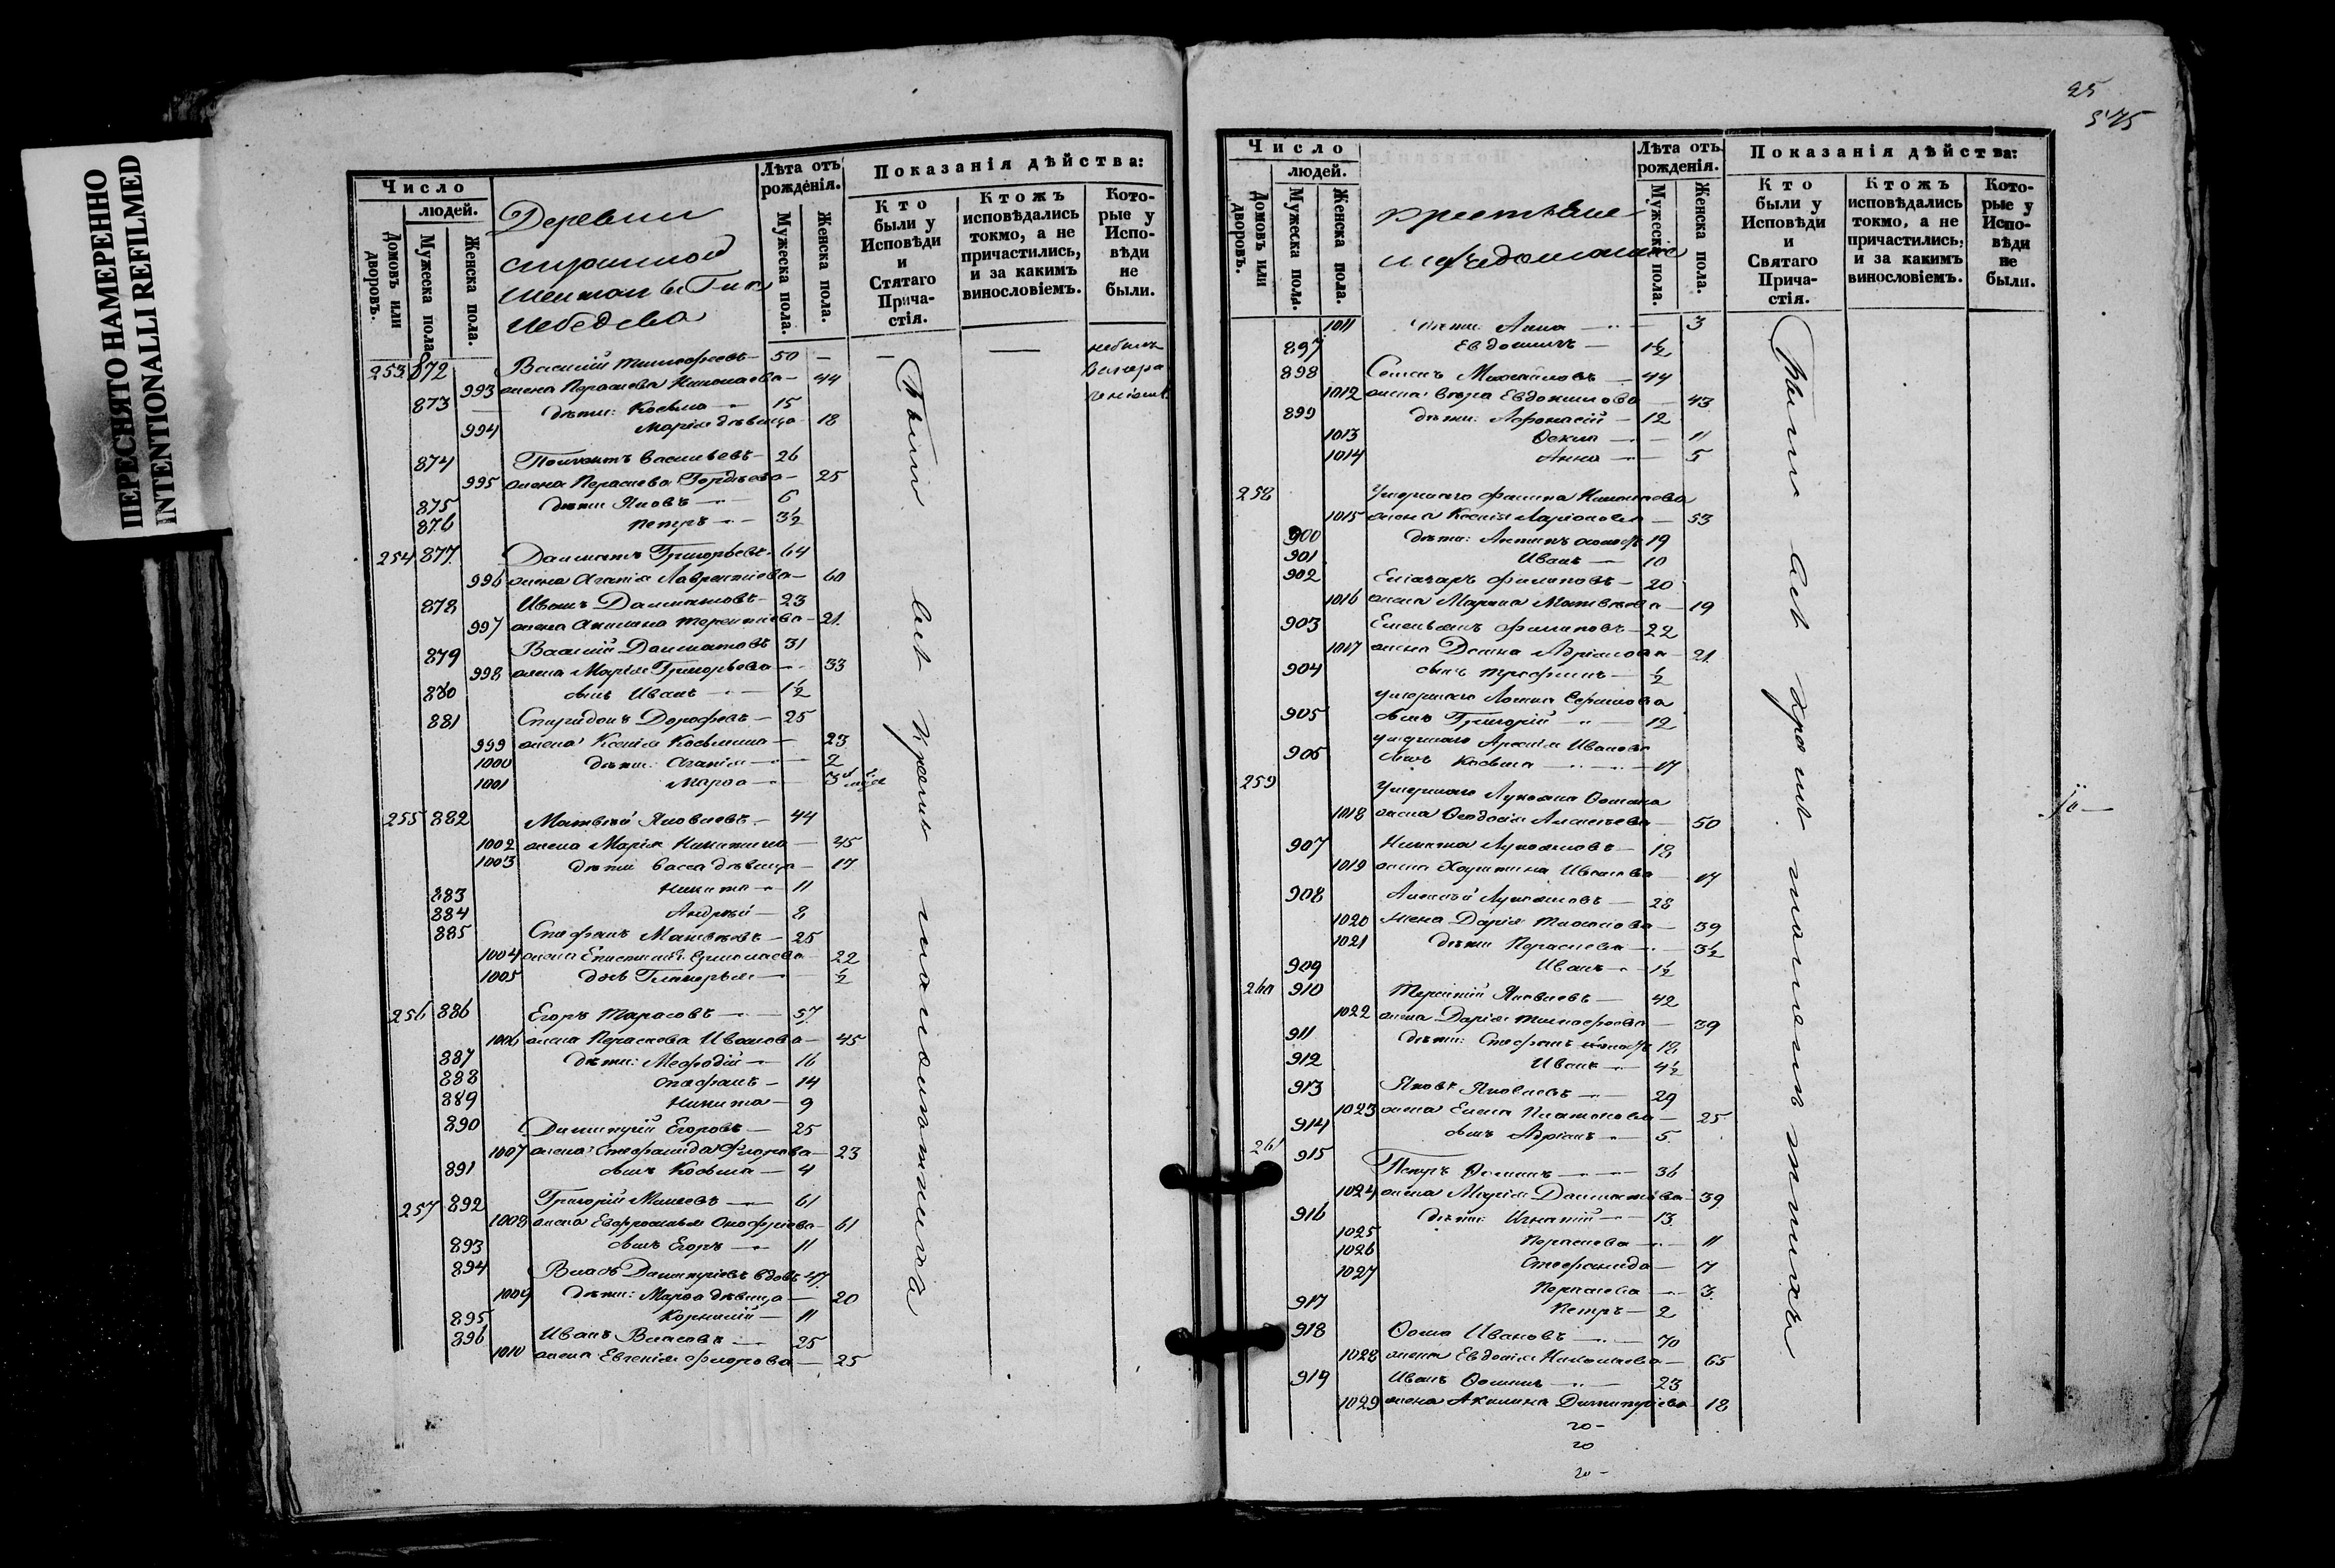 ПЕРЕСНЯТО НАМЕРЕННО
INTENTIONALLI REFILMED
Число
людей.
Домовъ или дворовъ.
Мужеска пола.
Женска пола.
Деревни
Лѣта отъ рожденія.
Мужеска пола.
Женска пола.
Показанія дѣйства:
Кто были у Исповѣди и Стятаго Прича- стія.
Ктожъ исповѣдались токмо, а не причастились, и за какимъ винословіемъ.
Кото- рые у Испо- вѣди не были.
253 872 Василий Тимофеевъ 50
993 жена Параскева Николаева 44
873 дѣти: Косьма 15
994 Марія дѣвица 18
874 Васильевъ 26
995 жена Параскева Гордѣева 25
875 дѣти Яковъ 6
876 Петръ 3½
254 877 Далматъ Григорьевъ 64
996 жена Агапія Лаврентіева 60
878 Иванъ Далматовъ 23
997 жена Акилина Терентіева 21
879 Василій Далматовъ 31
998 жена Марія Григорьева 33
880 сынъ Иванъ 1½
881 Спиридонъ Дорофеевъ 25
999 жена Ксенія Косьмина 23
1000 дѣти: Агапія 2
1001 Марѳа 3
255 882 Матвѣй Яковлевъ 44
1002 жена Марія Никитина 45
1003 дѣти Васса дѣвица 17
883 Никита 11
884 Андрей 8
885 Стефанъ Матвѣевъ 25
1004 жена 22
1005 дочь Гликерья ½
256 886 Егоръ Тарасовъ 57
1006 жена Параскева Иванова 45
887 дѣти: Меѳодій 16
888 Стефанъ 14
889 Никита 9
890 Димитрій Егоровъ 25
1007 жена Стефанида Флорова 23
891 сынъ Косьма 4
257 892 Григорій Моисеевъ 61
1008 жена Евфросинья Онофріева 61
893 сынъ Егоръ 11
894 Власъ Димитріевъ вдовъ 47
1009 дѣти: Марѳа дѣвица 20
895 Корнилій 11
896 Иванъ Власовъ 25
1010 жена Евгенія Флорова 25
Были
25
575
Число
людей.
Домовъ или дворовъ.
Мужеска пола.
Женска пола.
крестьяне
Лѣта отъ рожденія.
Мужеска пола.
Женска пола.
Показанія дѣйства:
Кто были у Исповѣди и Святаго Прича- стія.
Ктожъ исповѣдались токмо, а не причастились, и за какимъ винословіемъ.
Кото- рые у Испо- вѣди не были.
1011 дѣти: Анна 3
897 Евдокимъ 1½
898 Михайловъ 44
1012 жена Вѣра Евдокимова 43
899 дѣти: Афонасій 12
1013 11
1014 Анна 5
258 Умершаго Филипа Николаева
1015 жена Ксенія Ларіонова 53
900 дѣти: Антипъ 19
901 Иванъ 10
902 Еліазаръ Филиповъ 20
1016 жена Марина Матвѣева 19
903 Емельянъ Филиповъ 22
1017 жена Домна Адріанова 21
904 сынъ Трофимъ ½
умершаго
905 сынъ Григорій 12
умершаго Арсенія Иванова
906 сынъ Косьма 17
259 Умершаго Лукіана
1018 жена Ѳеодосія Алексѣева 50
907 Никита Лукіановъ 18
1019 жена Харитина Иванова 17
908 Алексѣй Лукіановъ 28
1020 жена Дарія 39
1021 дѣти Параскева 3½
909 Иванъ 1½
260 910 Терентій Яковлевъ 42
1022 жена Дарія Тимофеева 39
911 дѣти: Стефанъ 18
912 Иванъ 4½
913 Яковъ Яковлевъ 29
1023 жена Елена Платонова 25
914 сынъ Адріанъ 5
261 915 Петръ 36
1024 жена Марія Далматова 39
916 дѣти Игнатій 13
1025 Параскева 11
1026 Стефанида 7
1027 Параскева 3
917 Петръ 2
918 Ѳома Ивановъ 70
1028 жена Евдокія 65
919 Иванъ Ѳоминъ 23
1029 жена Акилина Димитріева 18
20
20
20
Были